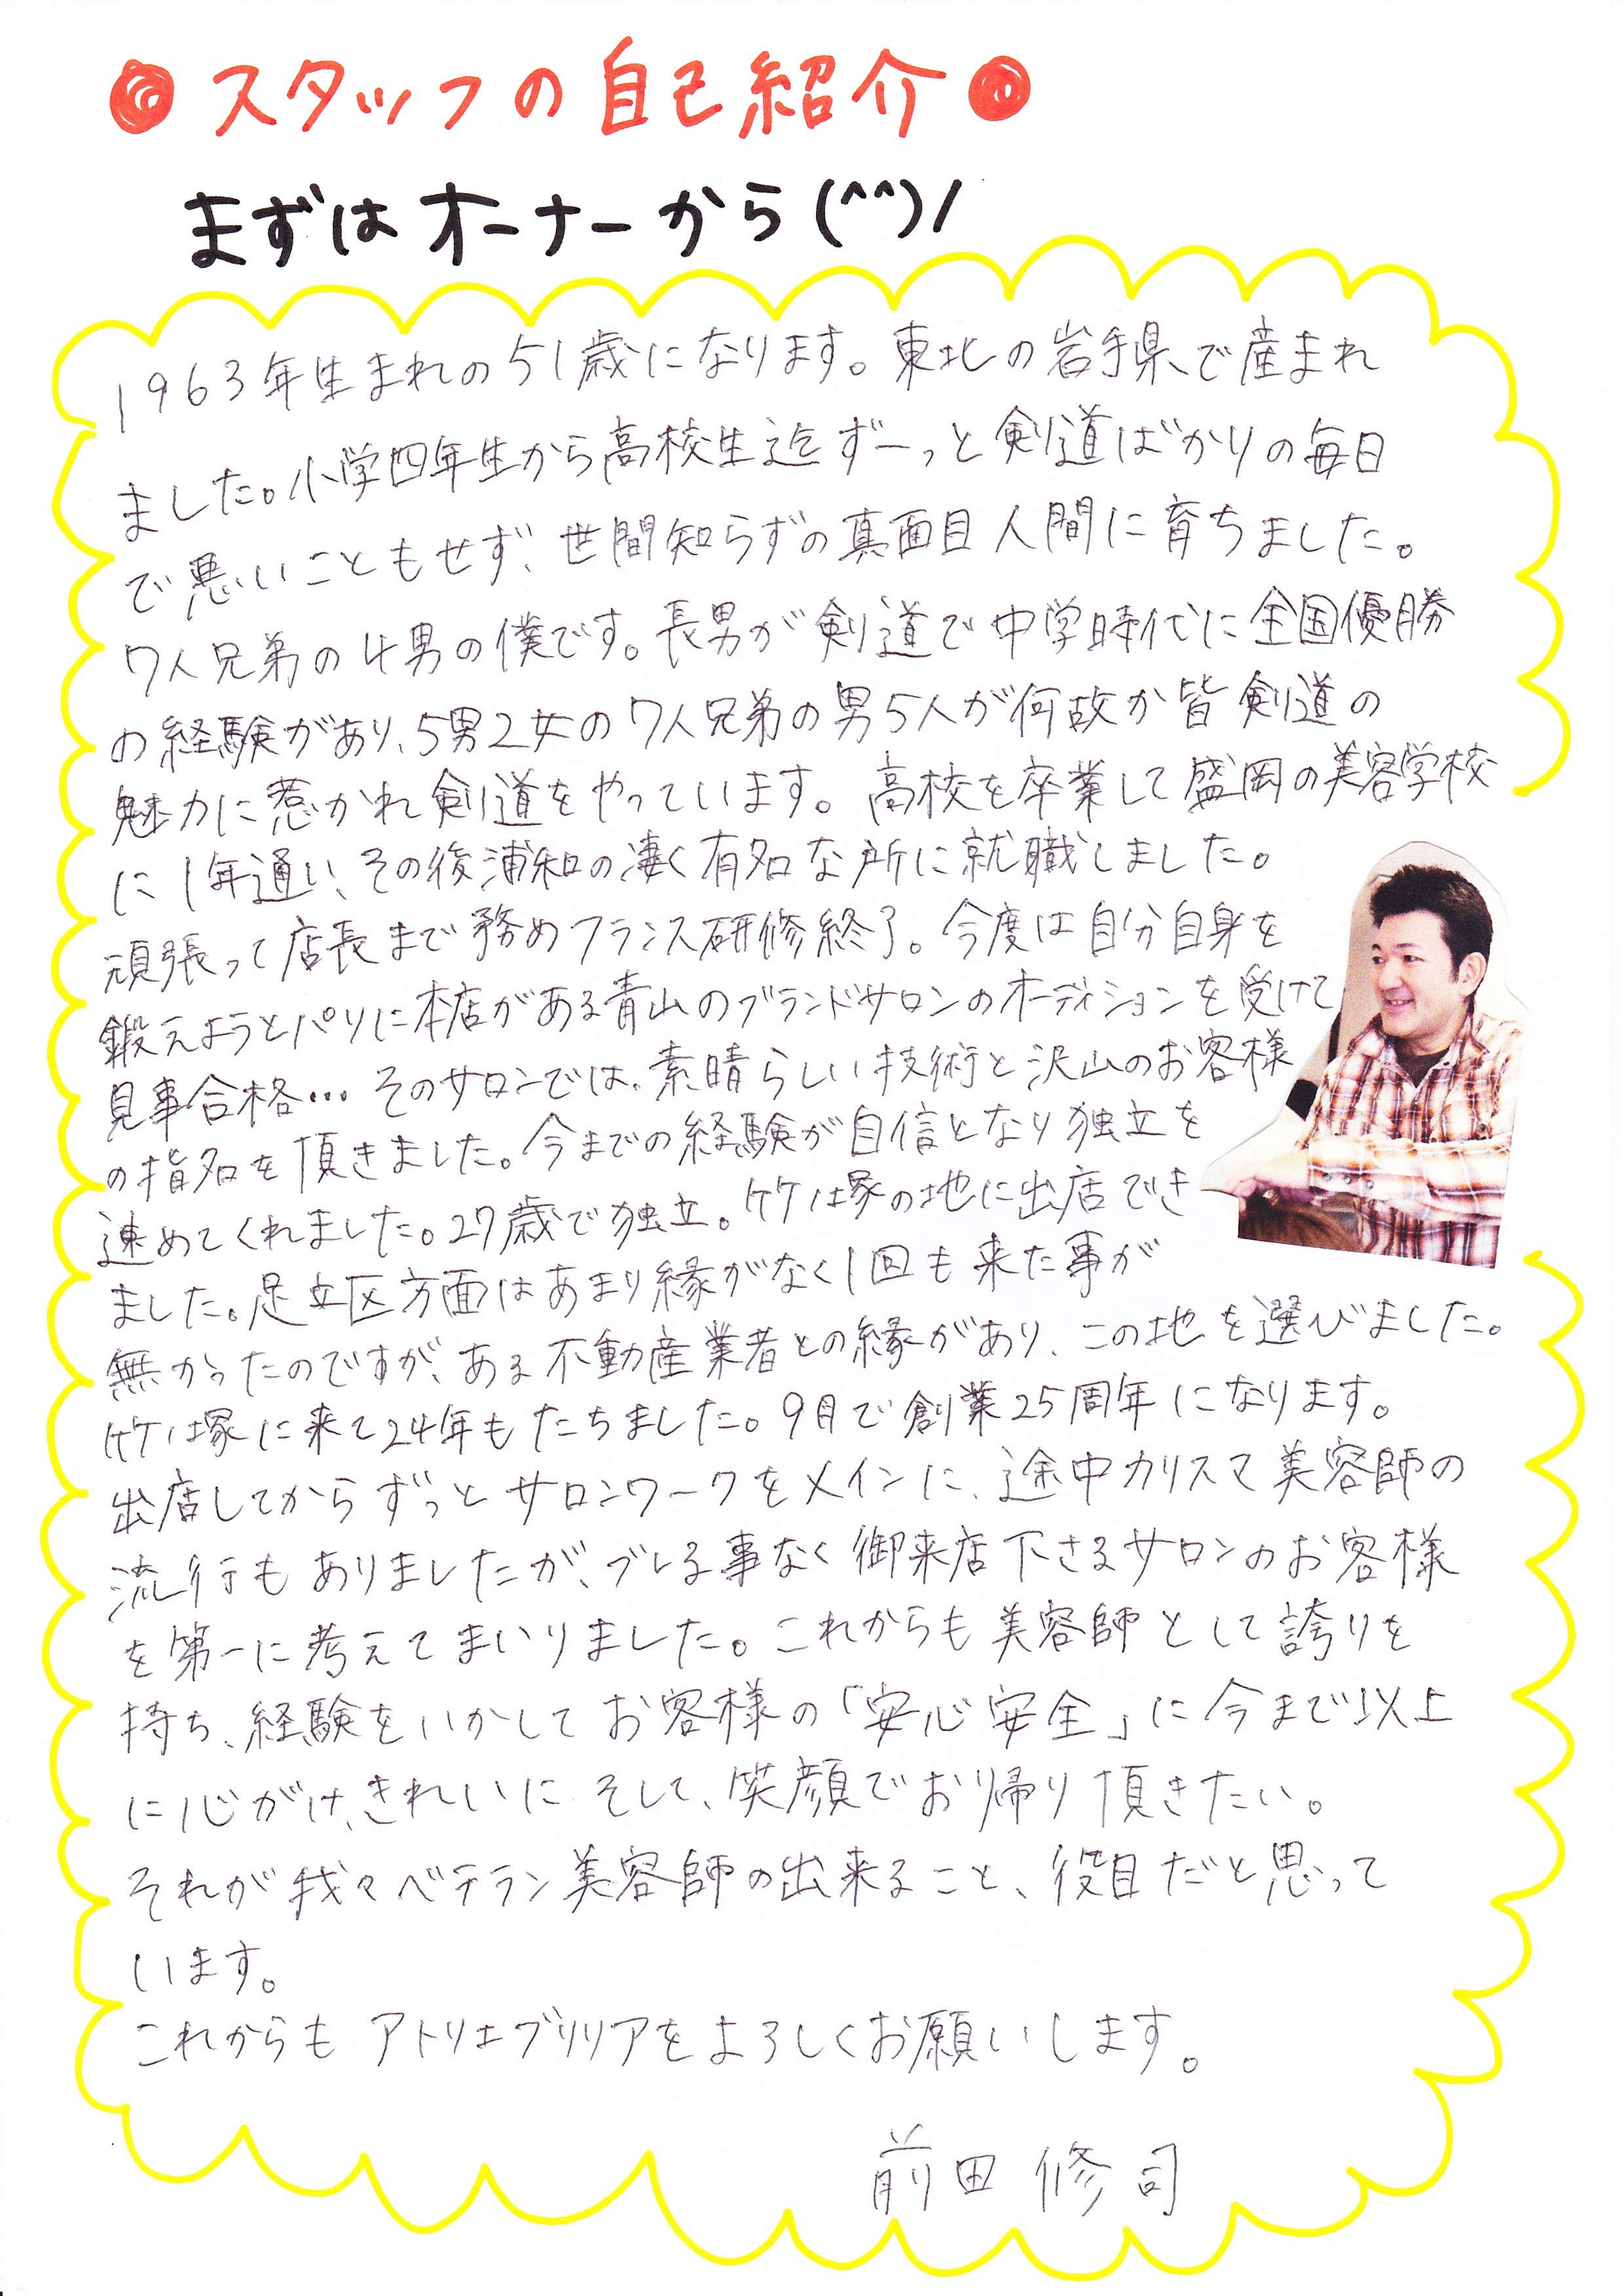 ◎スタッフの自己紹介◎
まずはオーナーから(^^)/
1963年生まれの51歳になります。東北の岩手県で産まれ
ました。小学四年生から高校生迄ずーっと剣道ばかりの毎日
で悪いこともせず、世間知らずの真面目人間に育ちました。
7人兄弟の4男の僕です。長男が剣道で中学時代に全国優勝
の経験があり、5男2女の7人兄弟の男5人が何故か皆剣道の
魅力に惹かれ剣道をやっています。高校を卒業して盛岡の美容学校
に1年通い、その後浦和の凄く有名な所に就職しました。
頑張って店長まで務めフランス研修終了。今度は自分自身を
鍛えようとパリに本店がある青山のブランドサロンのオーディションを受けて
見事合格… そのサロンでは、素晴らしい技術と沢山のお客様
の指名を頂きました。今までの経験が自信となり独立を
速めてくれました。27歳で独立。竹ノ塚の地に出店でき
ました。足立区方面はあまり縁がなく1回も来た事が
無かったのですが、ある不動産業者との縁があり、この地を選びました。
竹ノ塚に来て24年もたちました。9月で創業25周年になります。
出店してからずっとサロンワークをメインに、途中カリスマ美容師の
流行もありましたが、ブレる事なく御来店下さるサロンのお客様
を第一に考えてまいりました。これからも美容師として誇りを
持ち、経験をいかしてお客様の「安心安全」に今まで以上
に心がけ、きれいに そして、笑顔でお帰り頂きたい。
それが我々ベテラン美容師の出来ること、役目だと思って
います。
これからも アトリエブリリアをよろしくお願いします。
前田 修司